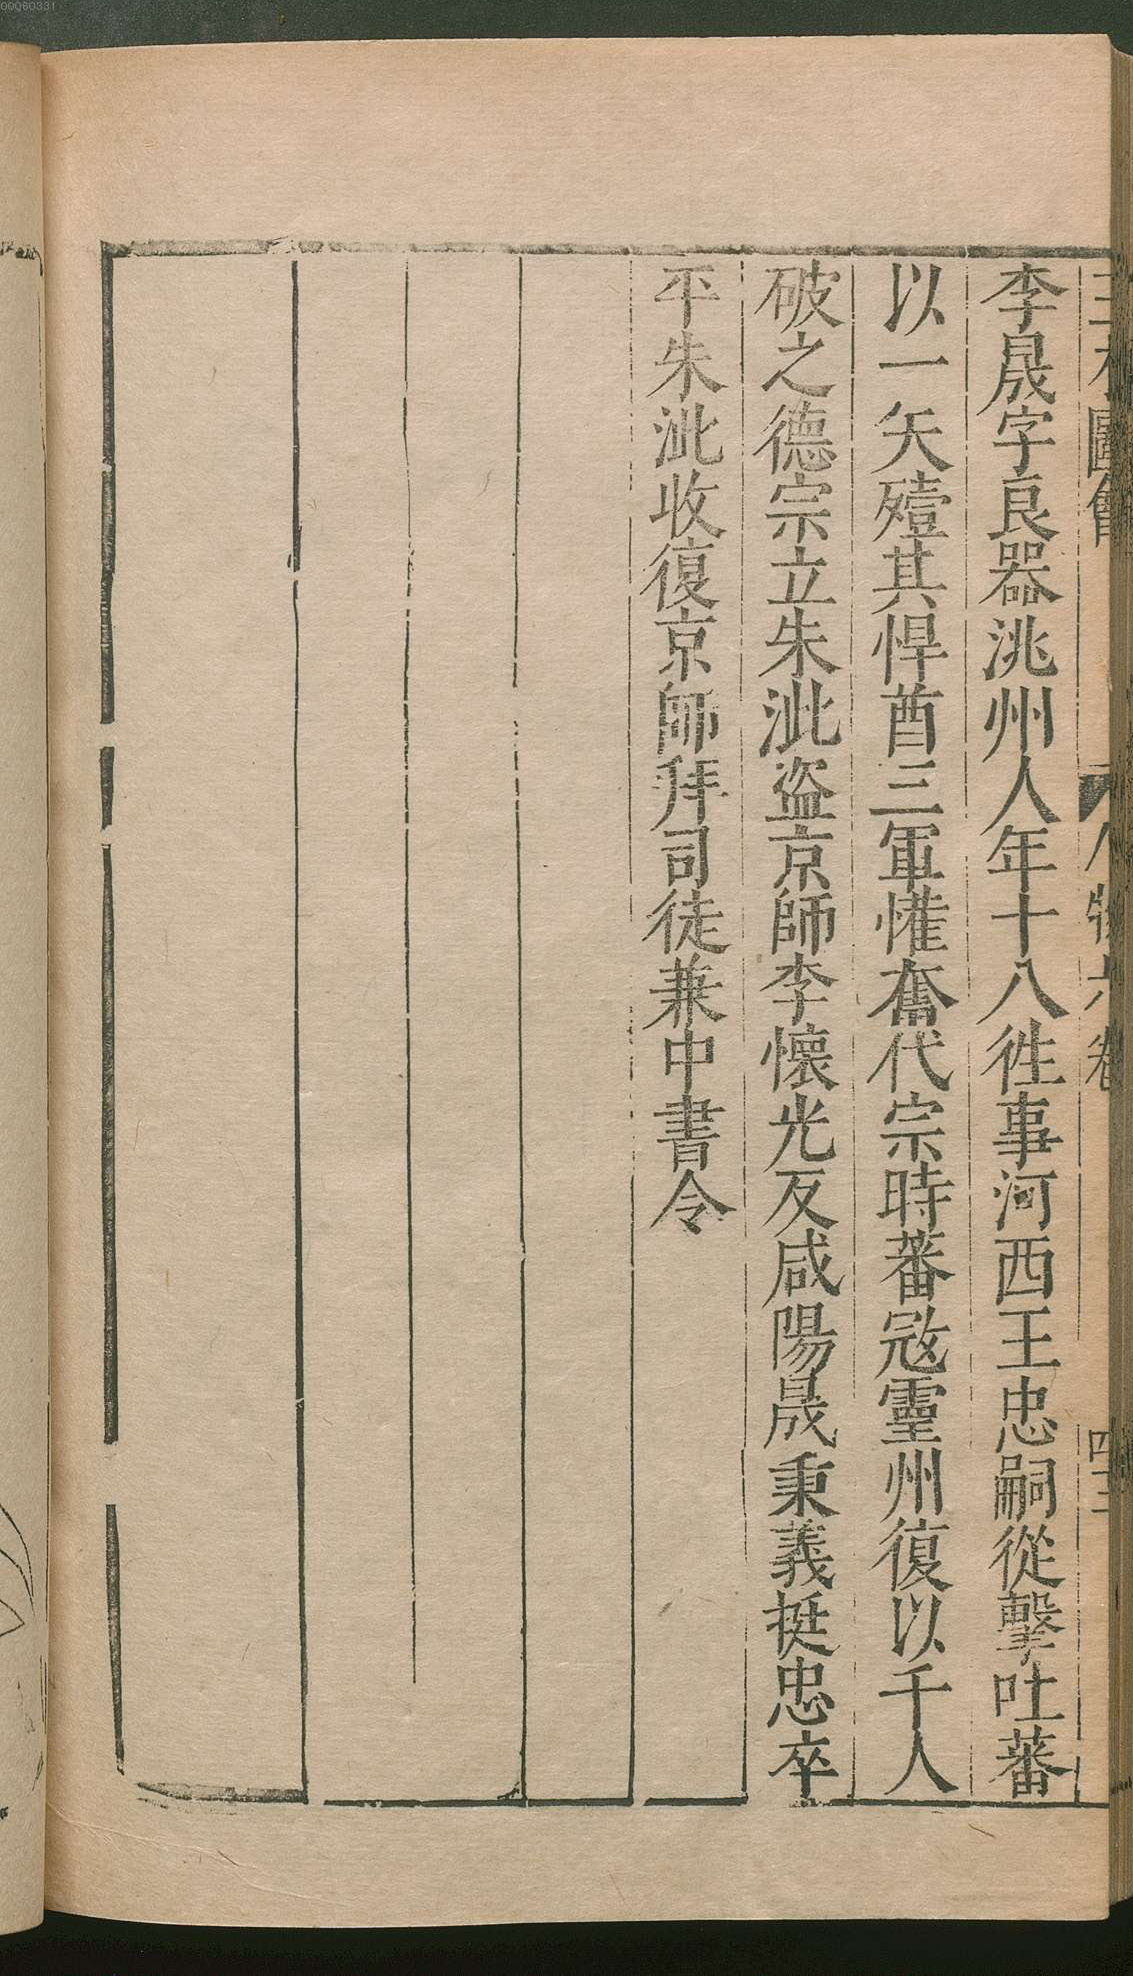 李晟字良器洮州人年十八徃事河西王忠嗣從擊吐蕃
以一矢殪其悍酋三軍懽奮代宗時蕃宼靈州復以千人
破之德宗立朱泚盜京師李懷光反咸陽晟秉義挺忠卒
平朱泚收復京師拜司徒兼中書令
圖會 人物六卷 四三
00060331